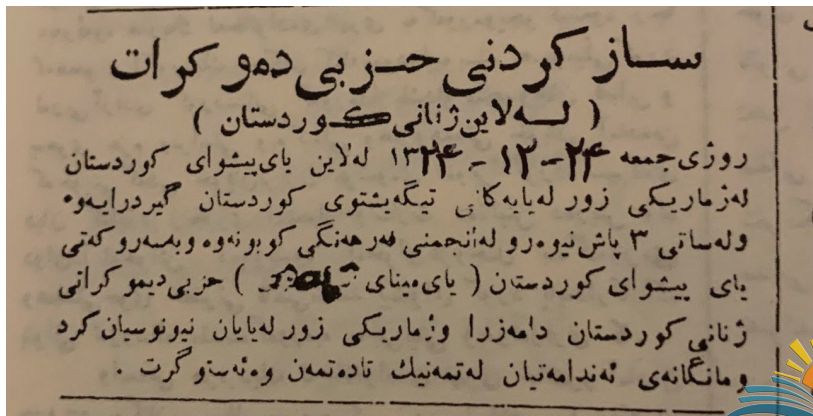 ساز کردنی حزبی دموکرات
( لەلاین ژنانی کوردستان )
روژی جمعه ٢٤ - ١٢ - ١٣٢٤ لەلاین یای پیشوای کوردستان
لەژماریکی زور لەیایەکانی تیگەیشتوی کوردستان گیردرایەوە
ولەساتی ٣ پاش نیوەرو لەانجمنی فەرهەنگی کوبونەوە وبەسەروکەتی
یای پیشوای کوردستان ( یای مینای ) حزبی دیموکراتی
ژنانی کوردستان دامەزرا وژماریکی زور لەیایان نیونوسیان کرد
ومانگانەی ئەندامەتیان لەتمەنیك تادەتمەن وەئەستو گرت .